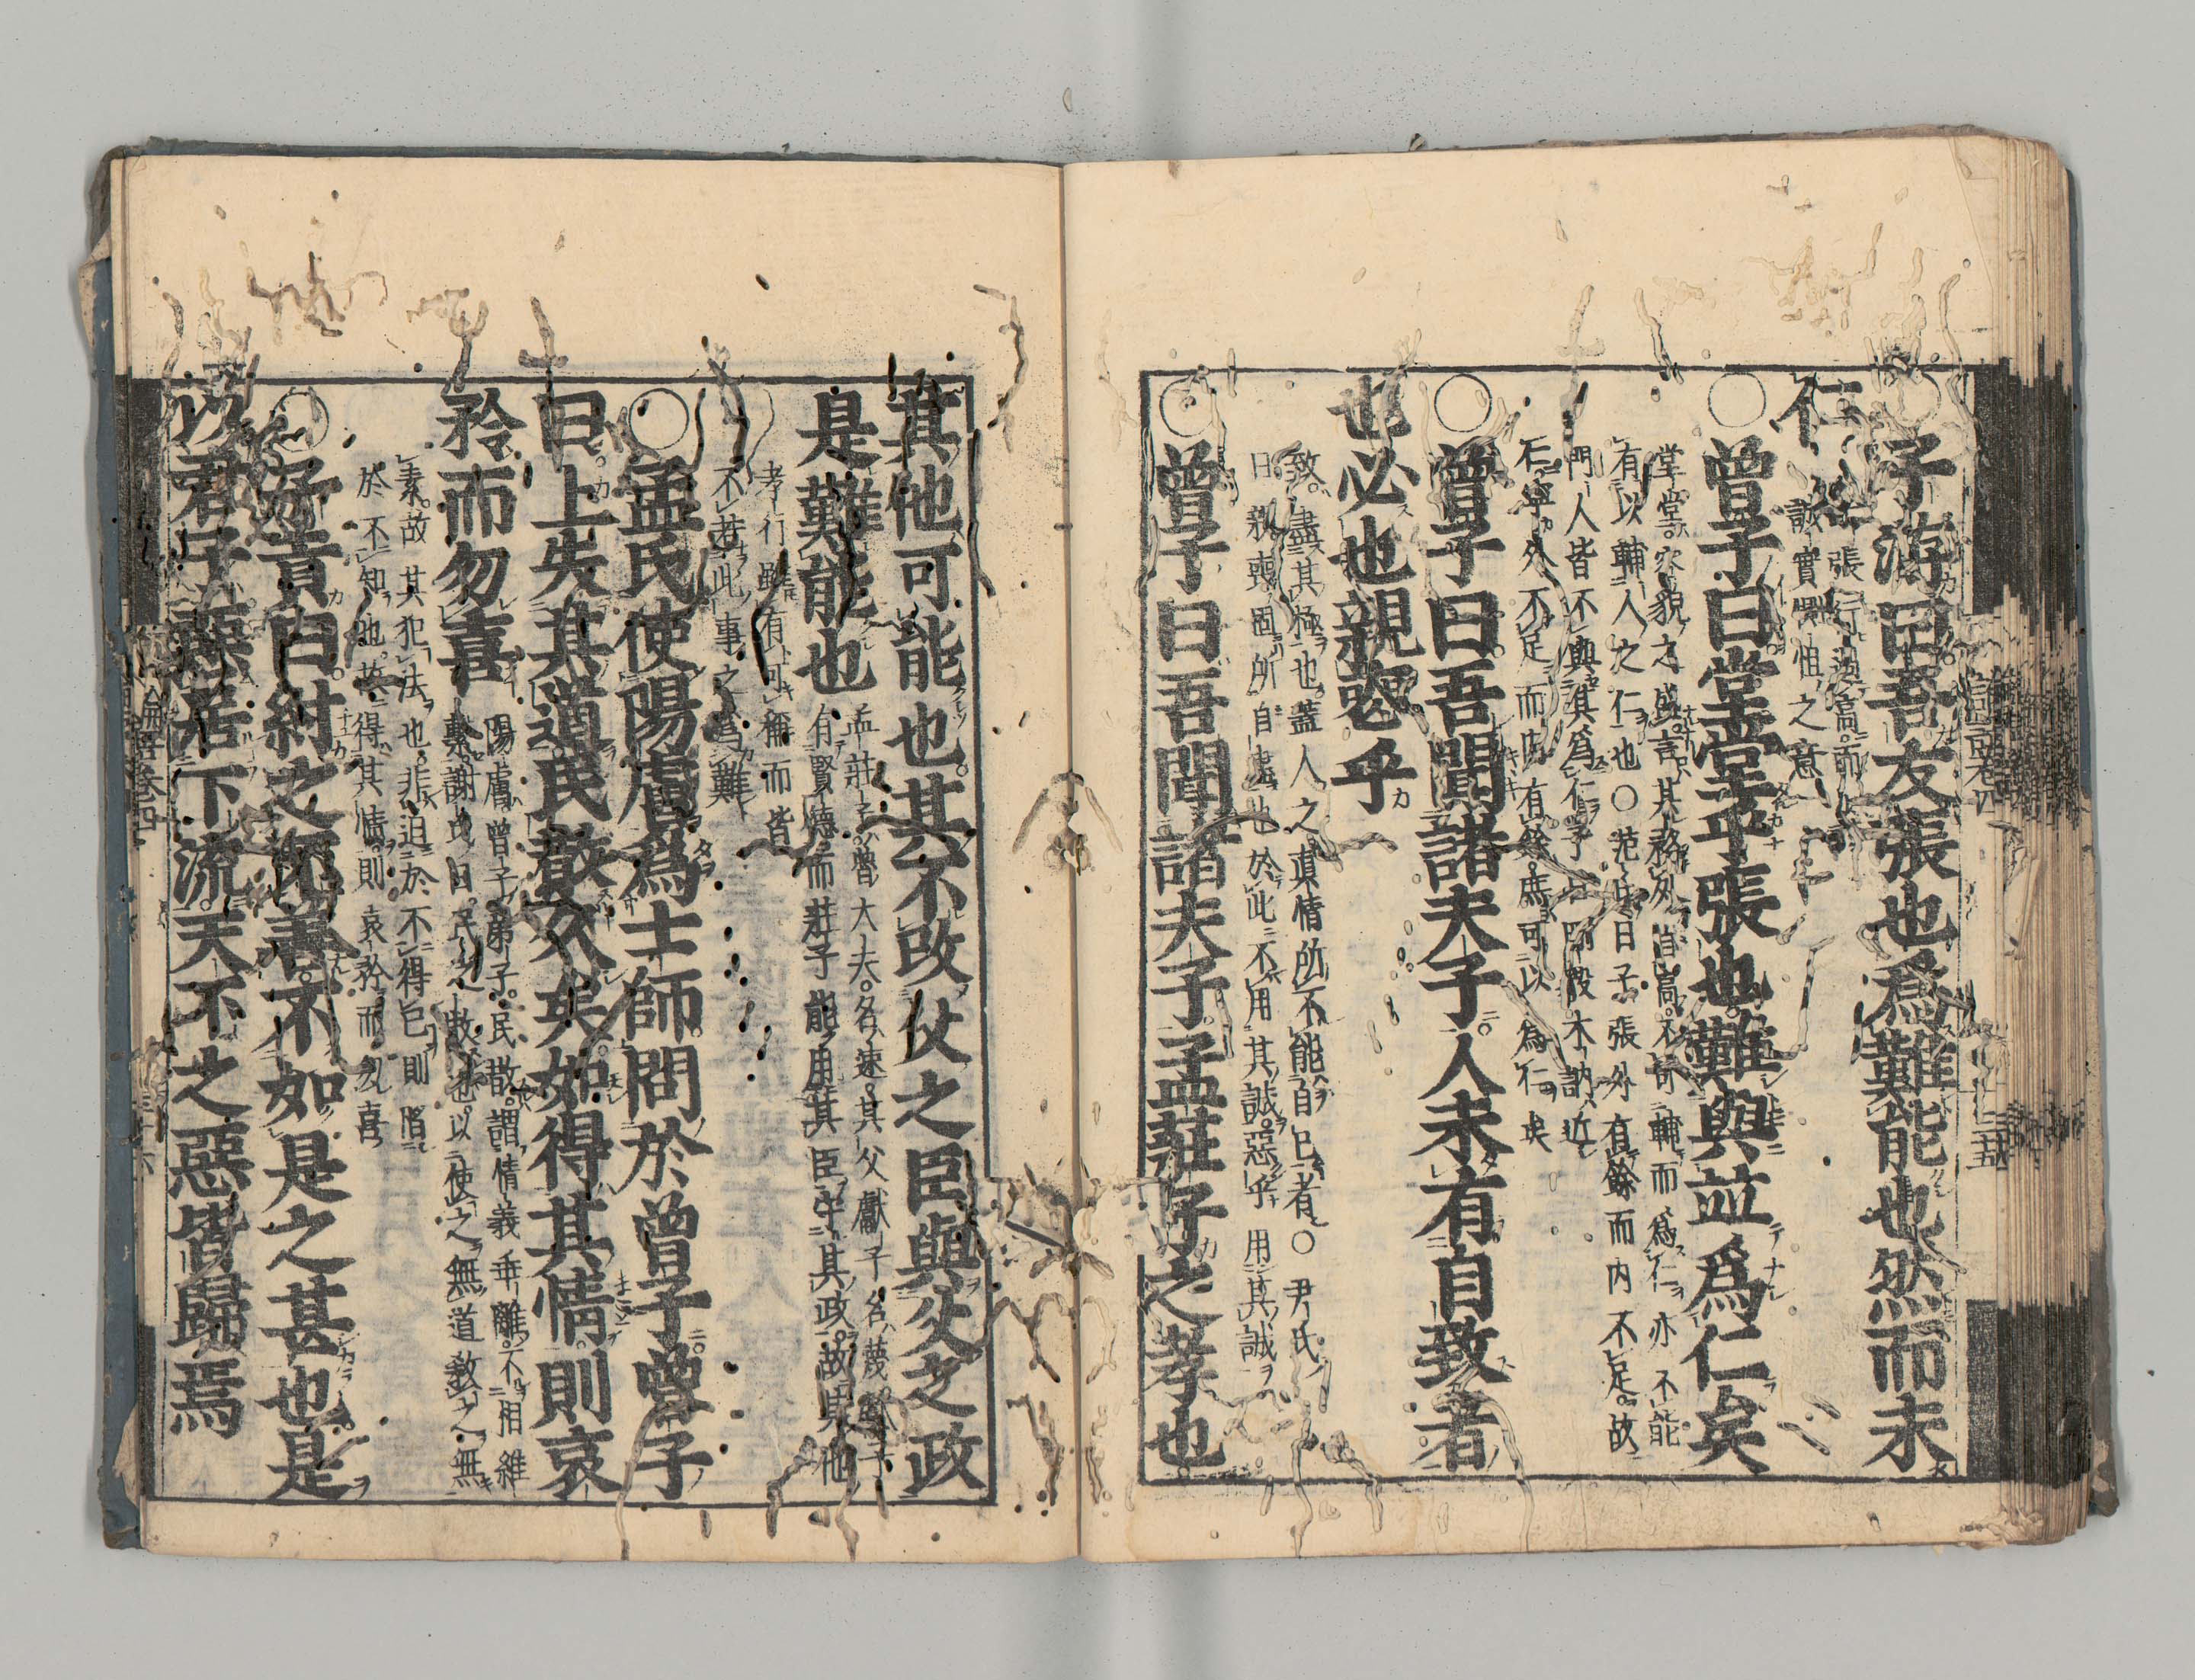 ○子游曰吾友張也爲難能也然而未
仁
子張行過高而
誠實惻怛之意
○曾子曰堂堂乎張也難與並爲仁矣
堂堂容貌之盛言其務外自高不可輔而爲仁亦不能
有以輔人之仁也○范氏曰子張外有餘而内不足故
門人皆不與其爲仁子曰剛毅木訥近
仁寧外不足而内有餘庶可以爲仁矣
○曾子曰吾聞諸夫子人未有自致者
也必也親喪乎
致盡其極也蓋人之眞情所不能自已者○尹氏
曰親喪固所自盡也於此不用其誠惡乎用其誠
○曾子曰吾聞諸夫子孟莊子之孝也
其他可能也其不改父之臣與父之政
是難能也
孟莊子魯大夫名速其父獻子名蔑獻子
有賢德而莊子能用其臣守其政故其他
孝行雖有可稱而皆
不若此事之爲難
○孟氏使陽膚爲士師問於曾子曾子
曰上失其道民散久矣如得其情則哀
矜而勿喜
陽膚曾子弟子民散謂情義乖離不相維
繫謝氏曰民之散也以使之無道教之無
素故其犯法也非迫於不得已則陷
於不知也故得其情則哀矜而勿喜
○子貢曰紂之不善不如是之甚也是
以君子惡居下流天下之惡皆歸焉
論語卷四